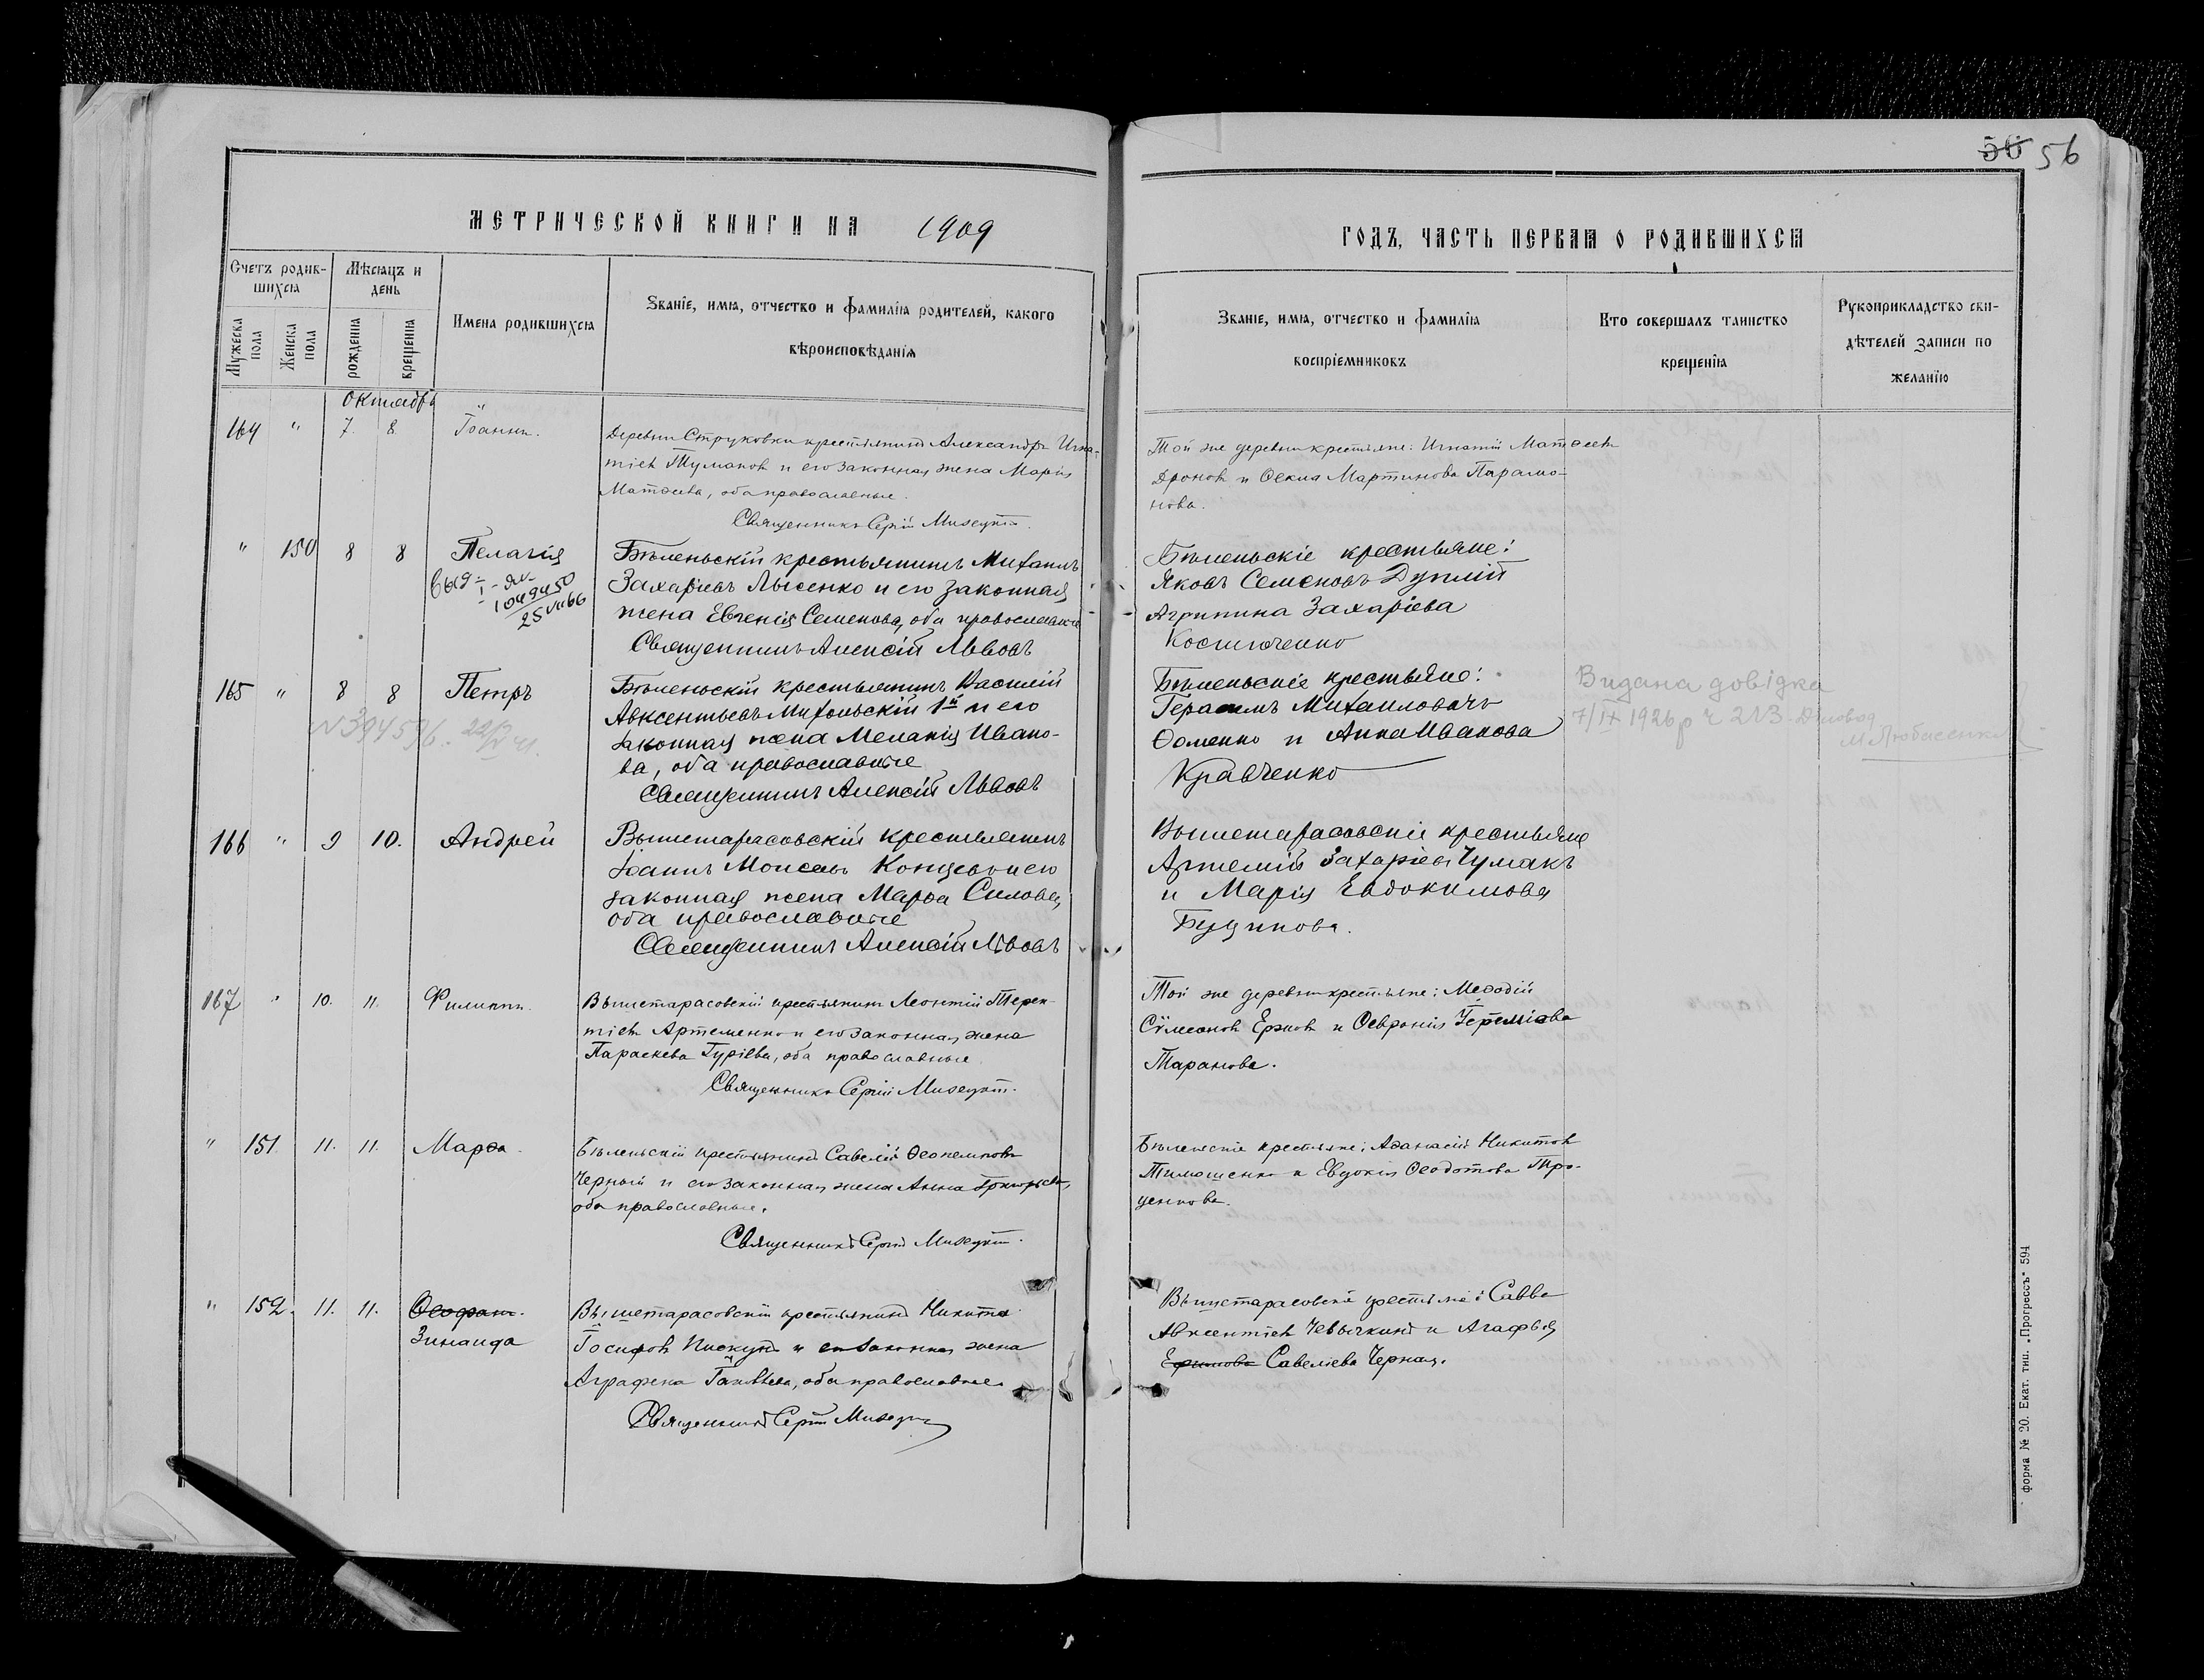 56 56
МЕТРИЧЕСКОЙ КНИГИ НА 1909
ГОДЪ, ЧАСТЬ ПЕРВАЯ О РОДИВШИХСЯ
Счетъ родившихся
Мужеска пола
Женска пола
Мѣсяцъ и день
рожденія
крещенія
Имена родившихся
Званіе, имя, отчество и фамилія родителей, какого
вѣроисповѣданія
Званіе, имя, отчество и фамилія
воспріемниковъ
Кто совершалъ таинство
крещенія
Рукоприкладство сви-
дѣтелей записи по
желанію
Октябрь
164 " 7. 8. Іоаннъ.
Деревни Струковки крестьянинъ Александръ Игна-
тіевъ Тумаковъ и его законная жена Марія
Матѳеева, оба православные.
Священникъ Сергій
Той же деревни крестьяне: Игнатій Матѳеевъ
Дроновъ и Ѳекла Мартинова Парамо-
нова.
" 150 8 8 Пелагія
1049450
25
Бѣленьскій крестьянинъ Михаилъ
Захаріевъ Лысенко и его законная
жена Евгенія Семенова, оба православные
Священникъ Алексій Львовъ
Бѣленьскіе крестьяне:
Яковъ Семеновъ Дуплій
Агрипина Захаріева
Костюченко
165 " 8 8 Петръ
N 394596. 22
Бѣленьскій крестьянинъ Василій
Авксентьевъ Михольскій 1й и его
законная жена Меланія Ивано-
ва, оба православные
Священникъ Алексій Львовъ
Бѣленьскіе крестьяне:
Герасимъ Михаиловичъ
Ѳоменко и Анна Иванова
Кравченко
Видана довідка
7/IX 1926 р ч 213 Діловод
М Любасенко
166 " 9 10. Андрей
Вышетарасовскій крестьянинъ
Іоаннъ Моисеевъ и его
законная жена Марѳа Силова,
оба православные
Священникъ Алексій Львовъ
Вышетарасовскіе крестьяне
Артемій Захаріевъ Чумакъ
и Марія Евдокимова
167 " 10. 11. Филиппъ.
Вышетарасовскій крестьянинъ Леонтій Терен-
тіевъ Артеменко и его законная жена
Параскева Гуріева, оба православные
Священникъ Сергій
Той же деревни крестьяне: Меѳодій
Сѵмеоновъ и Ѳевронія Іереміева
Таранова.
" 151. 11. 11. Марѳа.
Бѣленьскій крестьянинъ Савелій Ѳеопемптовъ
Черный и его законная жена Анна Григорьева,
оба православные.
Священникъ Сергій
Бѣленьскіе крестьяне: Аѳанасій Никитовъ
Тимошенко и Евдокія Ѳеодотова Тро-
ценкова.
" 152. 11. 11. Ѳеофан.
Зинаида
Вышетарасовскій крестьянинъ Никита
Іосифовъ Пискунъ и его законная жена
Аграфена Іаковлева, оба православные
Священникъ Сергій
Вышетарасовскіе крестьяне: Савва
Авксентіевъ Чевычкинъ и Агафья
Ефимова Савеліева Черная.
форма № 20. Екат. тип. „Прогрессъ" 594